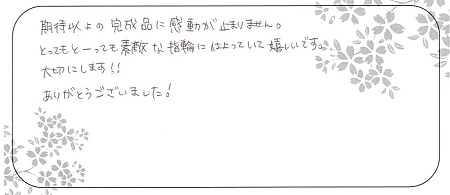 期待以上の完成品に感動が止まりません。
とってもと一っても素敵な指輪に仕上っていて嬉しいです。
大切にします!!
ありがとうございました!